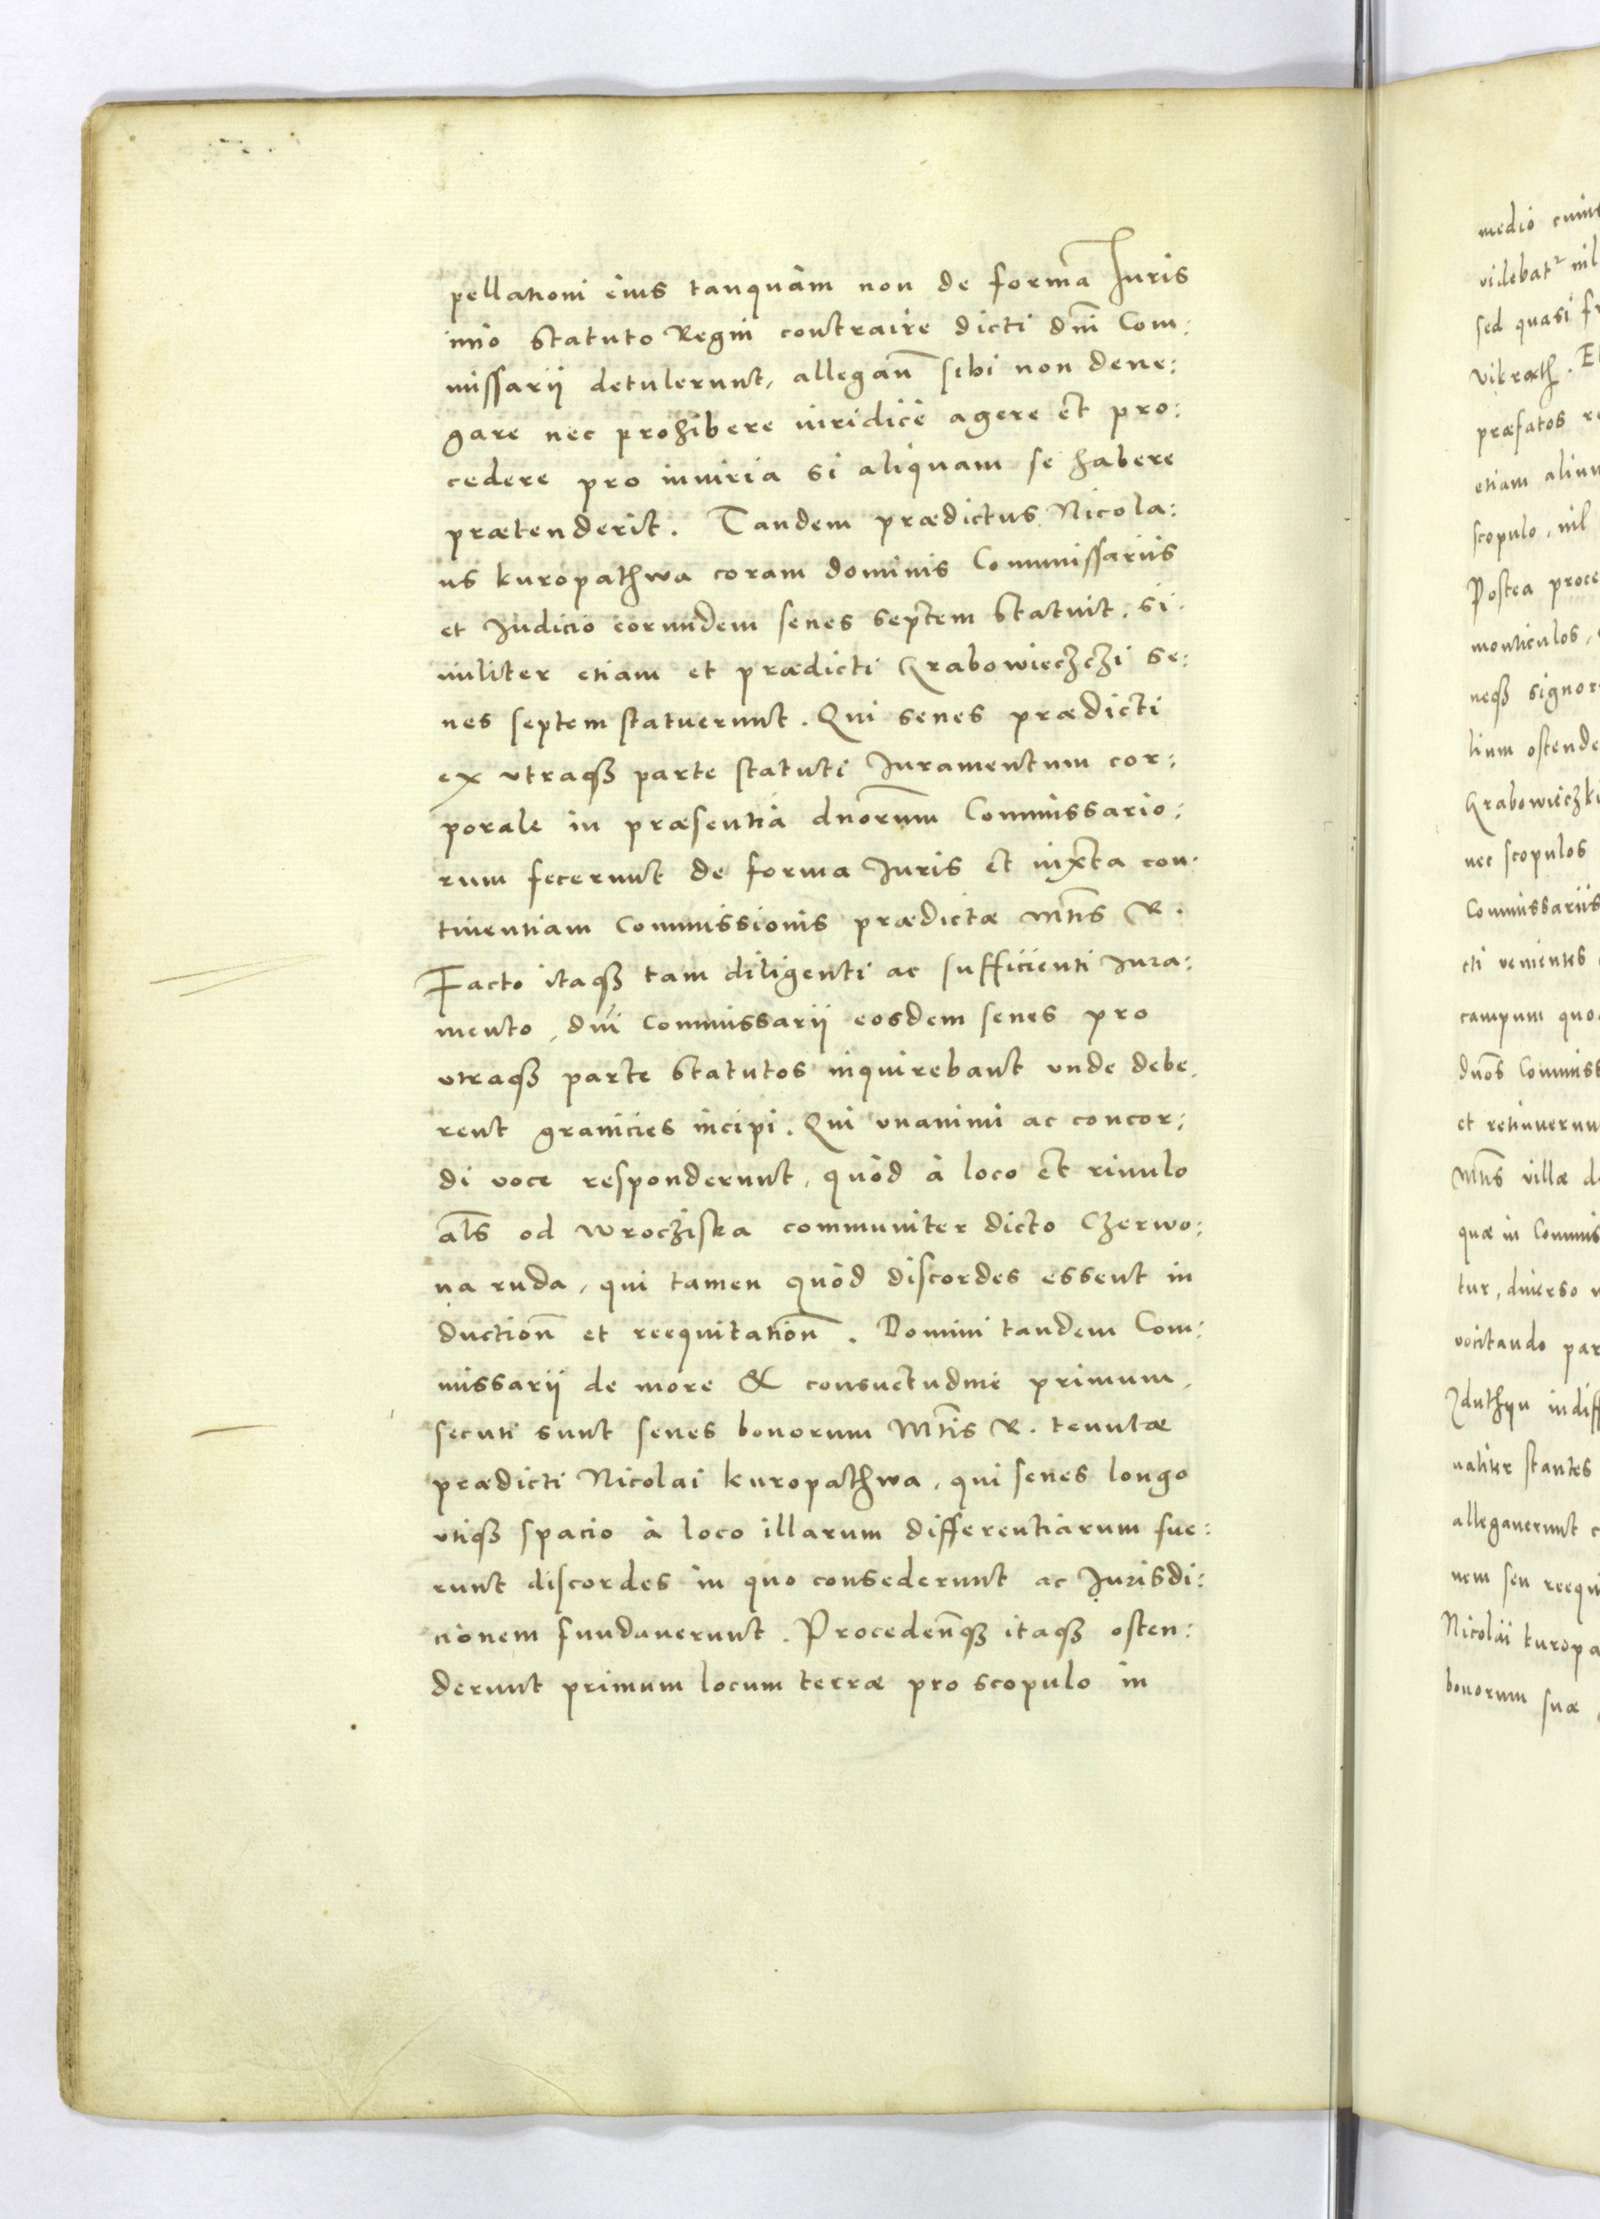 pellationi eius tanquàm non de forma Iuris
imò statuto Regni contraire dicti dñi Com:
missarij detulerunt, allegañ sibi non dene:
gare nec prohibere iuridicè agere et pro:
cedere pro iniuria si aliquam se habere
prætenderit. Tandem prædictus Nicola:
us kuropathwa coram dominis Commissariis
et Iudicio eorundem senes septem statuit, si:
militer etiam et prædicti Grabowieczczi se:
nes septem statuerunt. Qui senes prædicti
ex vtraqȝ parte statuti Iuramentum cor:
porale in præsentia dnorum Commissario:
rum fecerunt de forma Iuris et iuxta con:
tinentiam Commissionis prædictæ Mtis R.
Facto itaqȝ tam diligenti ac sufficienti Iura:
mento, dñi Commissarij eosdem senes pro
vtraqȝ parte statutos inquirebant vnde debe,
rent granicies incipi. Qui vnanimi ac concor:
di voce responderunt, quòd à loco et riuulo
als od wrocziska communiter dicto Czerwo:
na ruda, qui tamen quòd discordes essent in
duction̄ et reequitation̄. Domini tandem Com:
missarij de more & consuetudine primum,
secuti sunt senes bonorum Mtis R. tenutæ
prædicti Nicolai kuropathwa, qui senes longo
vtiqȝ spacio à loco illarum differentiarum fue:
runt discordes in quo consederunt ac Iurisdi:
cionem fundauerunt. Procedenqȝ itaqȝ osten:
derunt primum locum terræ pro scopulo in
medio
videbat
sed quasi
præfatos
etiam
scopulo, nil
Postea
monticulos,
neqȝ
lium
Grabowieczki
nec scopulos
Commissariis
cti venientes
campum
dnos
et
Mtis villæ
quæ in
tur, diuerso
vocitando
stantes
allegauerunt
nem seu
Nicolai
bonorum suæ